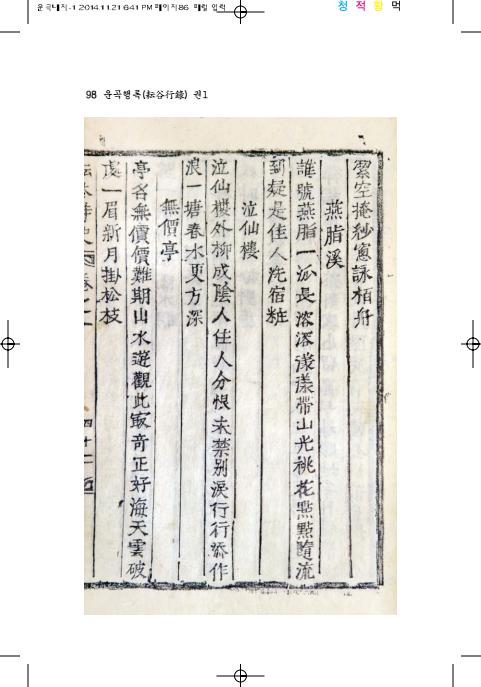 운곡내지-1 2014.11.21 6:41 PM 페이지86 매일 입력
청 적 황 먹
98 운곡행록(耘谷行錄) 권1
絮空掩紗窓詠栢舟
燕脂溪
誰號燕脂一派長溶溶漾漾帶山光桃花點點隨流
到疑是佳人洗宿粧
泣仙樓
泣仙樓外柳成陰人住人分恨未禁别淚行行添作
浪一塘春水更方深
無價亭
亭名無價價難期山水遊觀此㝡奇正好海天雲破
處一眉新月掛松枝